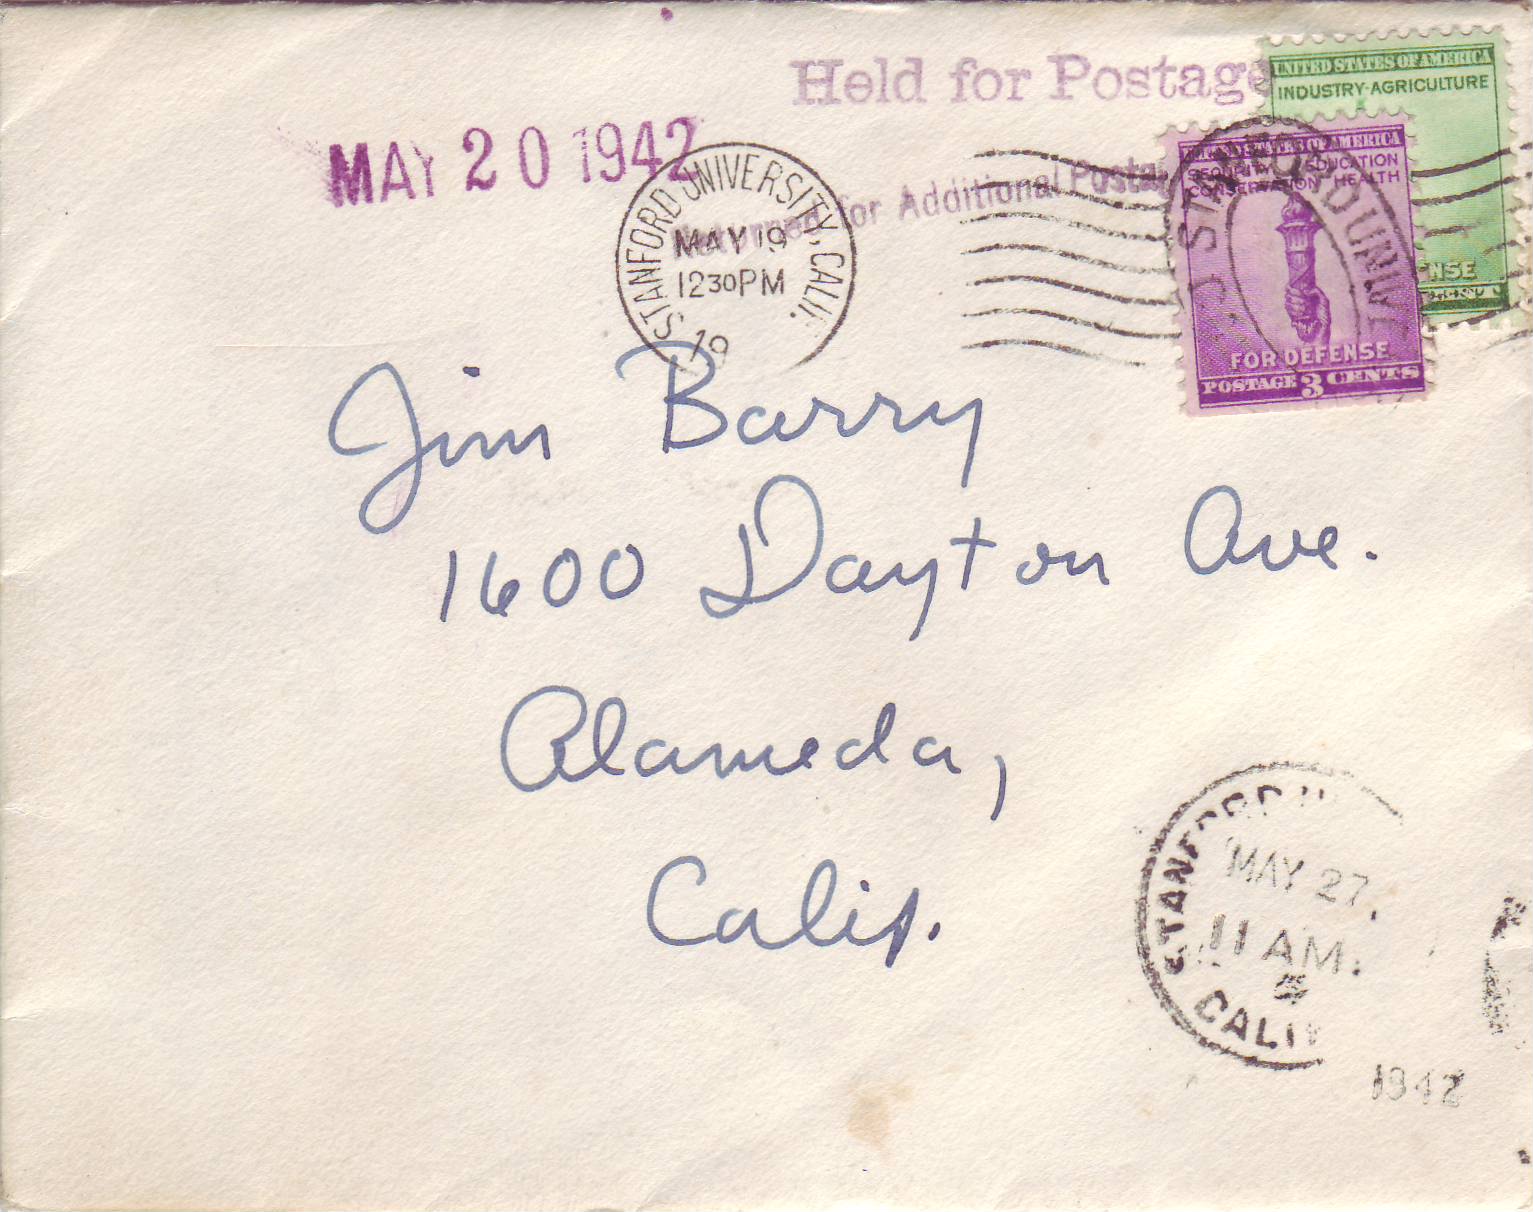 Held for Postage
UNITED STATES OF AMERICA
INDUSTRY·AGRICULTURE
MAY 20 1942
Returned for Additional Postag
STANFORD UNIVERSITY, CALIF.
MAY 19
1230PM
19
UNITED STATES OF AMERICA
SECURITY EDUCATION
CONSERVATION HEALTH
STANFORD UNIV
NSE
FOR DEFENSE
POSTAGE 3 CENTS
Jim Barry
1600 Dayton Ave.
Alameda,
Calif.
STANFORD U
MAY 27,
11 AM.
CALIF
1942